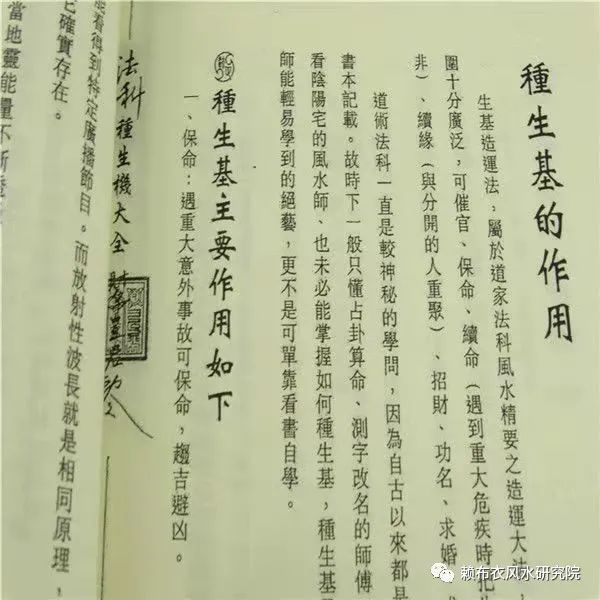 種生基的作用
生基造運法，屬於道家法科風水精要之造運大法，
圍十分廣泛，可催官、保命、續命（遇到重大危疾時把生
非）、續緣（與分開的人重聚）、招財、功名、求婚、
道術法科一直是較神秘的學問，因為自古以來都是
書本記載。故時下一般只懂占卦算命、測字改名的師傅
看陰陽宅的風水師、也未必能掌握如何種生基，種生基
師能輕易學到的絕藝，更不是可單靠看書自學。
種生基主要作用如下
一、保命：遇重大意外事故可保命，趨吉避凶。
法科種生機大全
能看得到特定廣播節目。而放射性波長就是相同原理，
它確實存在。
當地靈能量不斷
赖布衣风水研究院